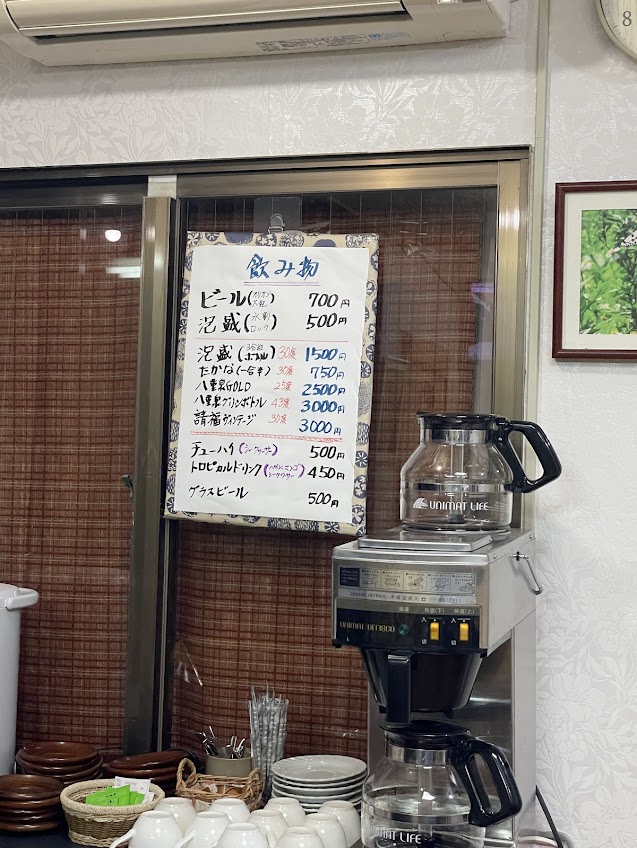 飲み物
ビール(オリオン大瓶) 700円
泡盛(水割ロック) 500円
泡盛(3合瓶ボトル) 30度 1500円
たかな(一合半) 30度 750円
八重泉GOLD 25度 2500円
八重泉グリーンボトル 43度 3000円
請福ヴィンテージ 30度 3000円
チューハイ(シークヮーサー) 500円
トロピカルドリンク 450円
グラスビール 500円
UNIMAT LIFE
UNIMAT OFFISCO
保温(下) 保温(上)
入 入
切 切
MAT LIFE
8